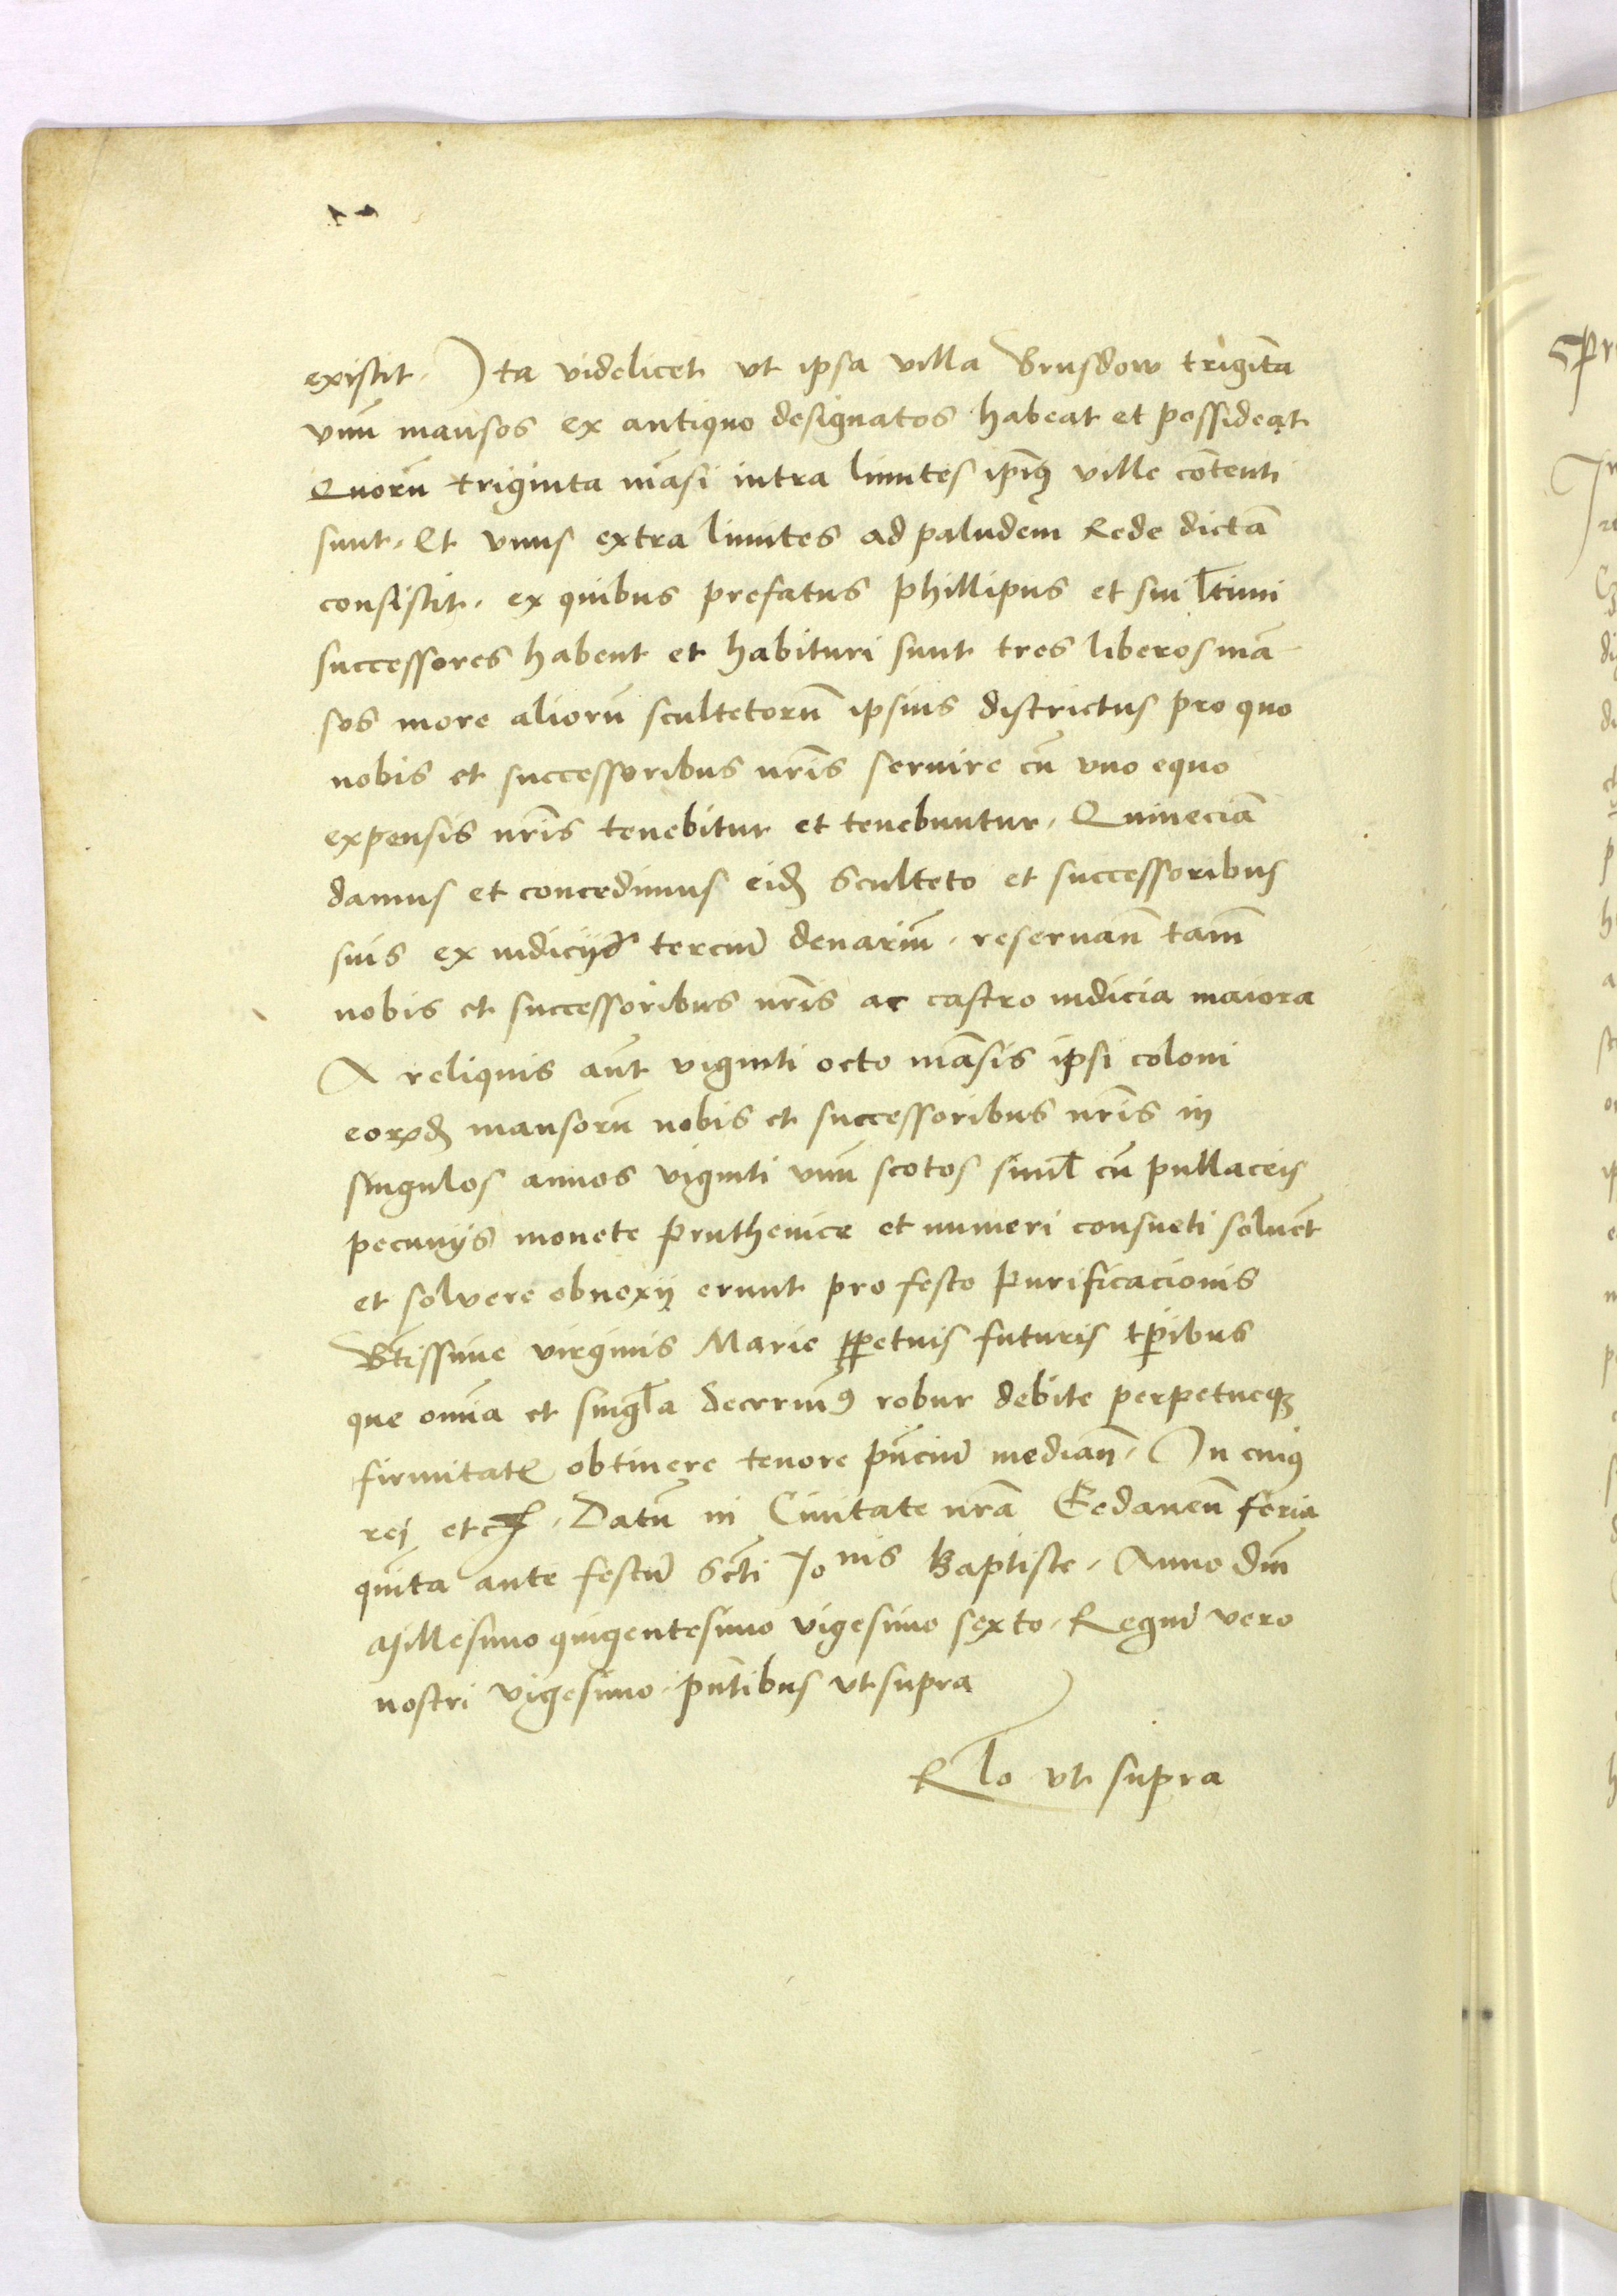 existit. Ita videlicet ut ipsa villa Brusdow trigīta
vnū mansos ex antiquo designatos habeat et possideat
Quorū triginta māsi intra limites ip̄iꝰ ville cōtenti
sunt. Et vnus extra limites ad paludem Rede dictā
consistit. ex quibus prefatus Phillipus et sui l̄timi
successores habent et habituri sunt tres liberos mā
sos more aliorū scultetorū ipsius districtus pro quo
nobis et successoribus nr̄is seruire cū vno equo
expensis nr̄is tenebitur et tenebuntur. Quineciā
damus et concedimus eidē Sculteto et successoribus
suis ex iudicijs terciū denariū. reseruan̄ tam̄
nobis et successoribus nr̄is ac castro iudicia maiora
A reliquis aūt viginti octo māsis ipsi coloni
eorꝝdē mansorū nobis et successoribus nr̄is in
singulos annos viginti vnū scotos siml̄ cū pullaceis
pecunijs monete Pruthenice et numeri consueti soluēt
et solvere obnoxij erunt pro festo Purificacionis
Btīssime virginis Marie ꝑpetuis futuris tp̄ibus
que om̄ia et singl̄a decernimꝰ robur debite perpetueqꝫ
firmitatꝭ obtinere tenore pn̄ciū median̄. In cuiꝰ
rei etc. Datū in Ciuitate nr̄a Gedanen̄ feria
quīta ante festū Scti Jonis Baptiste. Anno dnī
Millesimo quigentesimo vigesimo sexto. Regni vero
nostri vigesimo. pn̄tibus vt supra
Rl̄o vt supra